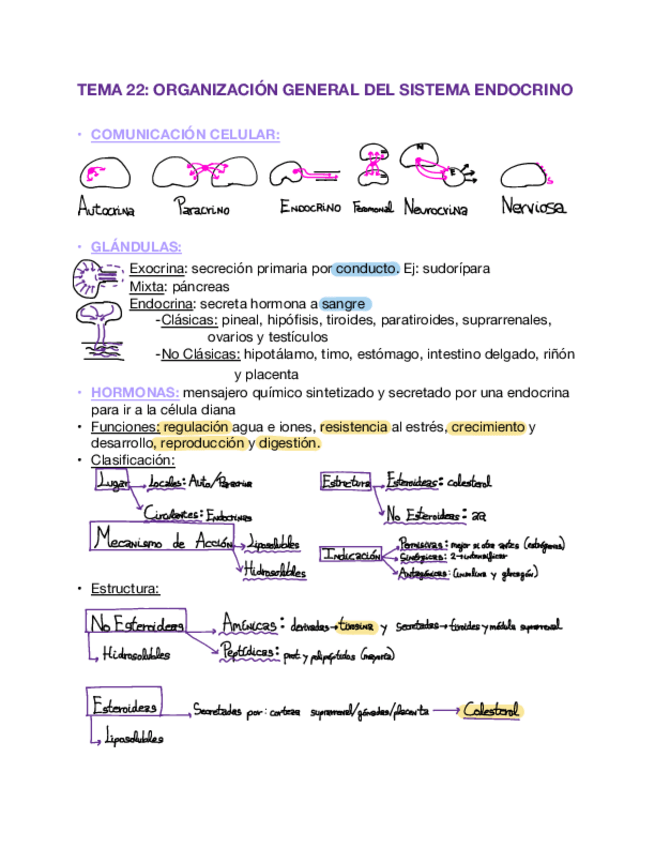 TEMA 22: ORGANIZACIÓN GENERAL DEL SISTEMA ENDOCRINO
• COMUNICACIÓN CELULAR:
N
E
Autocrina Paracrino Endocrino Feromonal Neurocrina Nerviosa
• GLÁNDULAS:
Exocrina: secreción primaria por conducto. Ej: sudorípara
Mixta: páncreas
Endocrina: secreta hormona a sangre
-Clásicas: pineal, hipófisis, tiroides, paratiroides, suprarrenales,
ovarios y testículos
-No Clásicas: hipotálamo, timo, estómago, intestino delgado, riñón
y placenta
• HORMONAS: mensajero químico sintetizado y secretado por una endocrina
para ir a la célula diana
• Funciones: regulación agua e iones, resistencia al estrés, crecimiento y
desarrollo, reproducción y digestión.
• Clasificación:
Lugar Locales: Auto/Paracrina
Circulantes: Endocrinas
Estructura Esteroideas: colesterol
No Esteroideas: aa
Mecanismo de Acción Liposolubles
Hidrosolubles
Indicación Permisivas: mejor si otra antes (estrógenos)
Sinérgicas: 2 → intensificar
Antagónicas: (insulina y glucagón)
• Estructura:
No Esteroideas Amínicas: derivadas → tirosina y secretadas → tiroides y médula suprarrenal
Hidrosolubles Peptídicas: prot y polipéptidos (mayoría)
Esteroideas Secretadas por: corteza suprarrenal/gónadas/placenta → Colesterol
Liposolubles